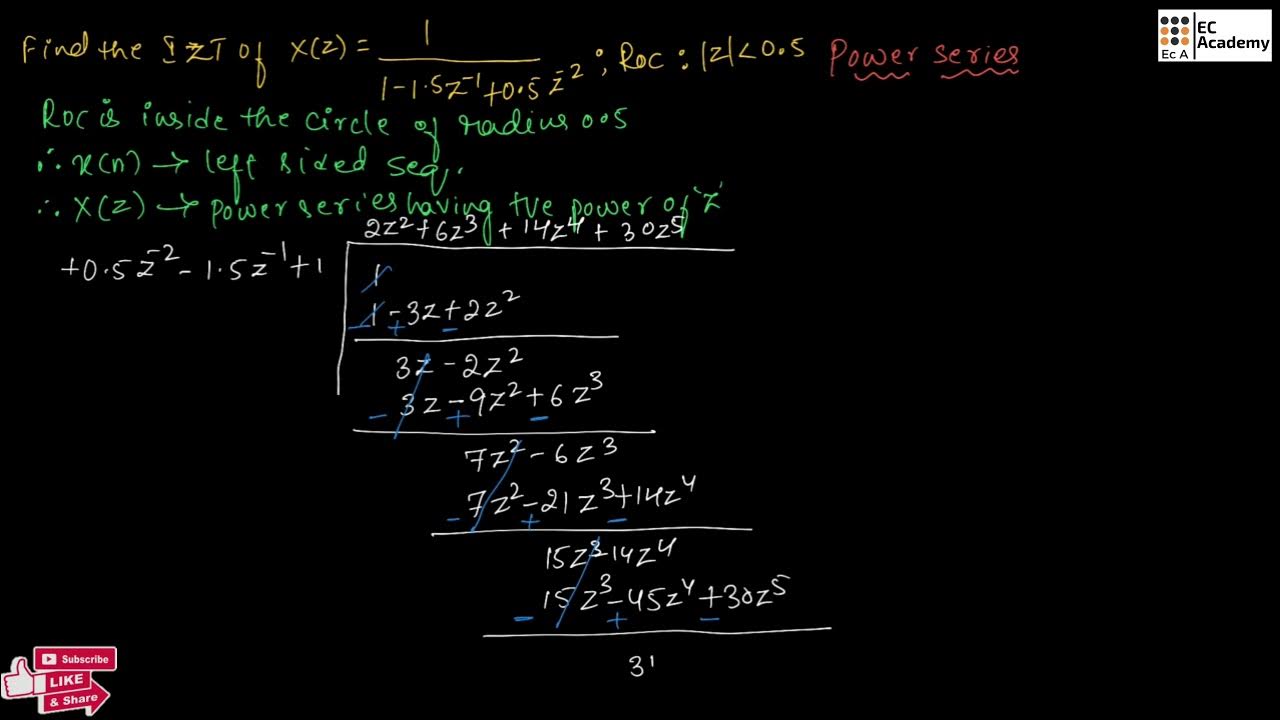 Find the IZT of X(z) = 1 / (1-1.5z⁻¹+0.5z⁻²) ; Roc : |z|<0.5 Power series
EC Academy
EcA
Roc is inside the circle of radius 0.5
∴ x(n) → left sided seq.
∴ X(z) → power series having +ve power of 'z'
2z²+6z³+14z⁴+30z⁵
+0.5z⁻²-1.5z⁻¹+1
1
1-3z+2z²
- + -
3z-2z²
3z-9z²+6z³
- + -
7z²-6z³
7z²-21z³+14z⁴
- + -
15z³-14z⁴
15z³-45z⁴+30z⁵
- + -
31
Subscribe
LIKE
& Share